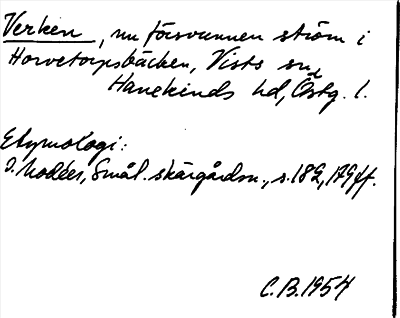 Verken, nu försvunnen ström i
Horvetorpsbäcken, Vists sn,
Hanekinds hd, Östg. l.
Etymologi:
I. Modéer, Smål. skärgårdsn., s. 182, 179 ff.
C.B. 1954